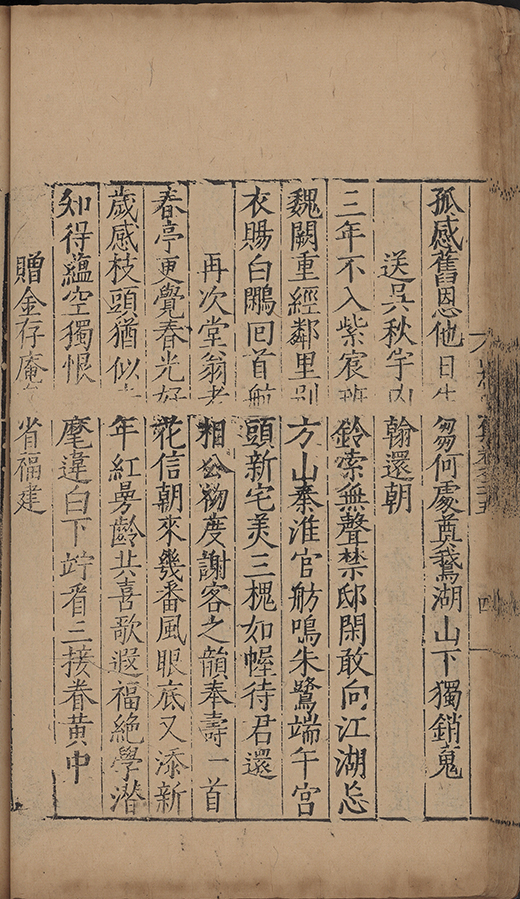 孤感舊恩他日生芻何處奠鵞湖山下獨銷䰟
送吳秋宇内翰還朝
三年不入紫宸班鈴索無聲禁邸閑敢向江湖忘
魏闕重經鄰里別方山秦淮官舫鳴朱鷺端午宮
衣賜白鷳回首頭新宅美三槐如幄待君還
再次堂翁老相公初度謝客之韻奉壽一首
春亭更覺春光好花信朝來幾番風眼底又添新
歲感枝頭猶似年紅齡共喜歌遐福絶學潛
知得蘊空獨恨麾違白下竚看三接眷黃中
贈金存庵省福建
四